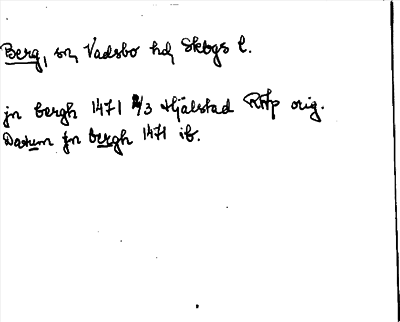 Berg, sn, Vadsbo hd, Skbgs l.
jn bergh 1471 2/3 Hjälstad RAp orig.
Datum jn bergh 1471 ib.